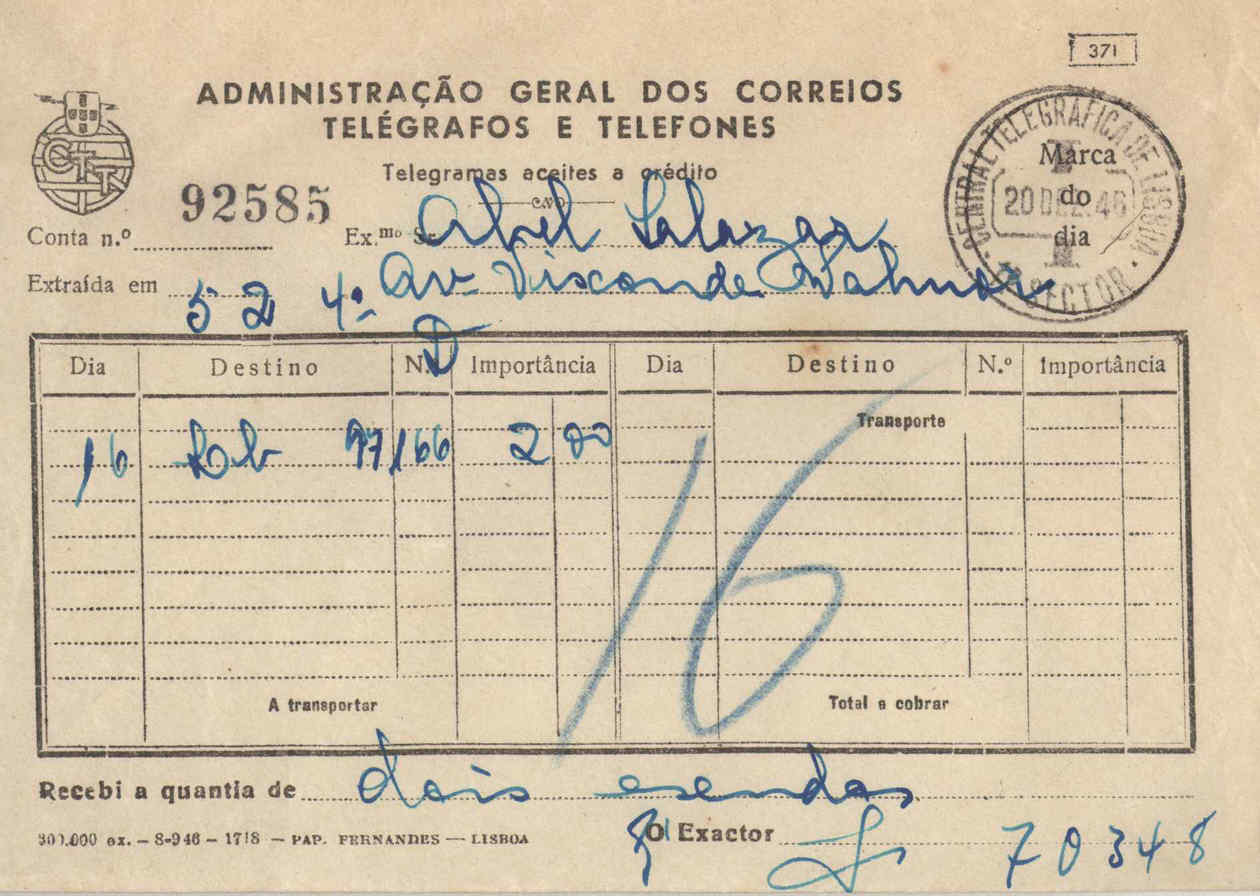 371
ADMINISTRAÇÃO GERAL DOS CORREIOS
TELÉGRAFOS E TELEFONES
CTT
Telegramas aceites a crédito
CENTRAL TELEGRAFICA DE LISBOA
Marca
20 DEZ. 46
do
dia
SECTOR
92585
Conta n.º Ex.mo Sr. Abel Salazar
Extraída em Av Visconde Valmor
52 4º
D
Dia Destino N.º Importância Dia Destino N.º Importância
Transporte
16 97/66 2 00
16
A transportar Total a cobrar
Recebi a quantia de dois escudos
300.000 ex. — 8-946 — 1718 — PAP. FERNANDES — LISBOA
O Exactor
70348